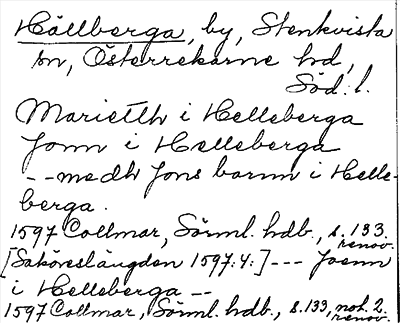 Hällberga, by, Stenkvista
sn, Österrekarne hd,
Söd. l.
Marietth i Helleberga
Jonn i Helleberga
--medh Jons barnn i Helle-
berga.
1597 Collmar, Sörml. hdb., s. 133.
renov.
[Saköreslängden 1597:4:] --- Joenn
i Helleberga --
1597 Collmar, Sörml. hdb., s. 133, not. 2.
renov.